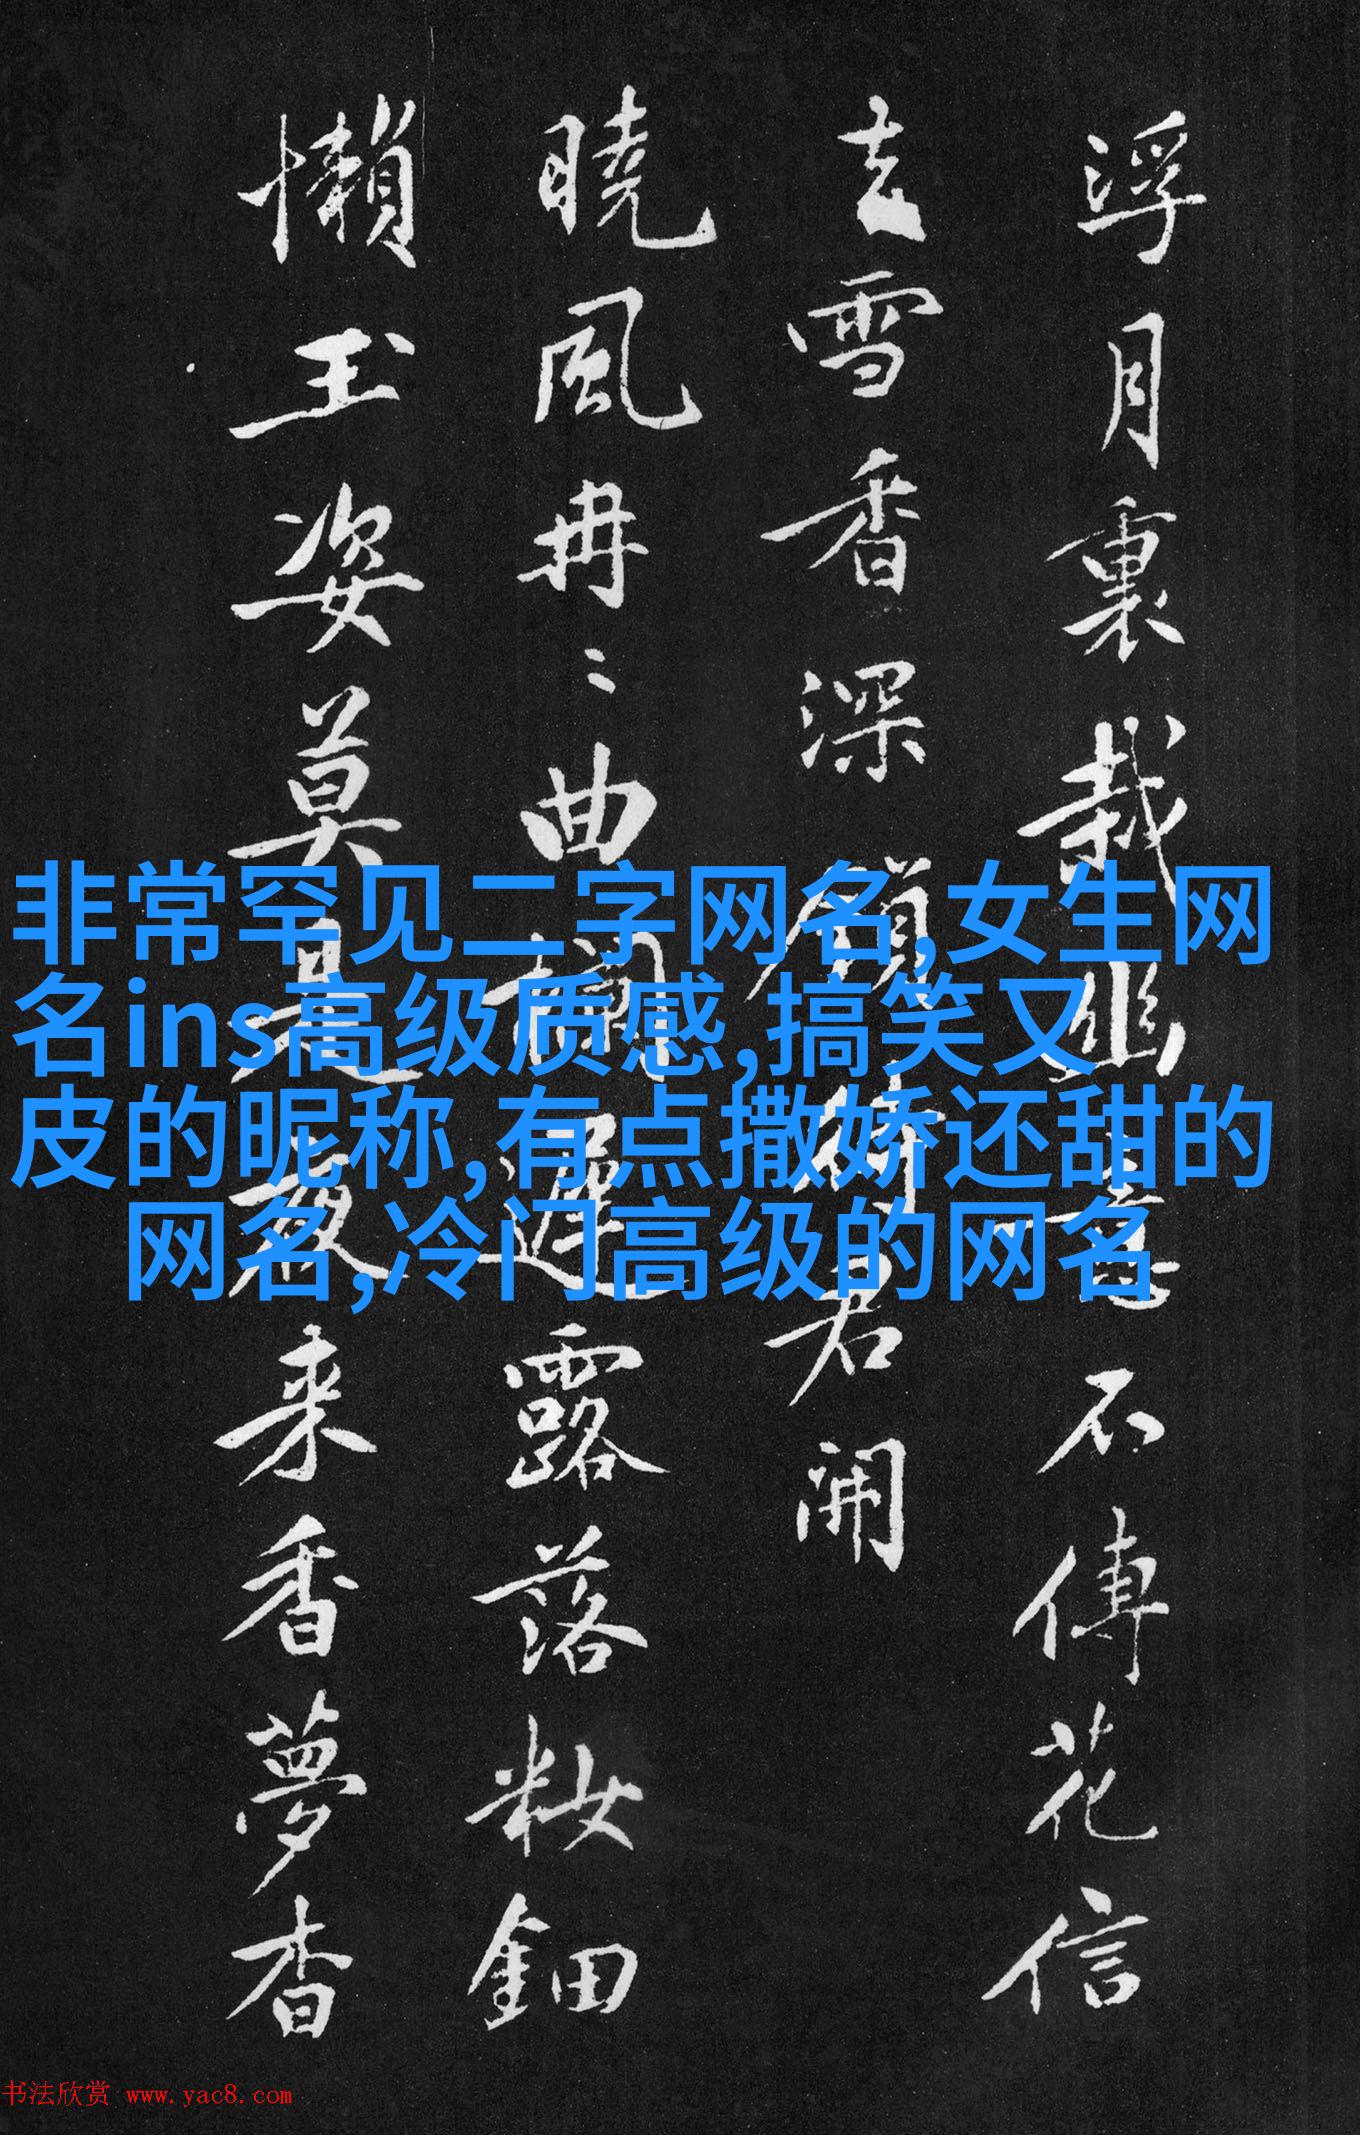 浮月裏栽幽意不傳花信
雪香深須待君開
曉風冉〻曲欄遲露落籹鈿
懶玉姿莫是夜来香夢杳
非常罕见二字网名,女生网
名ins高级质感,搞笑又
皮的昵称,有点撒娇还甜的
网名,冷门高级的网名
书法欣赏 www.yac8.com